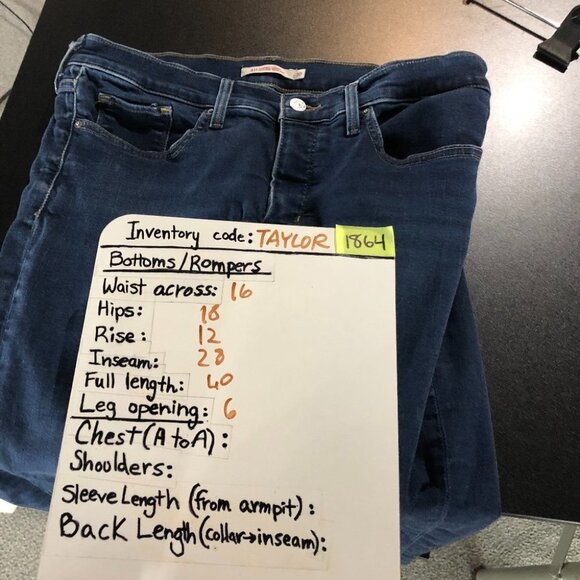 Inventory code: TAYLOR 1864
Bottoms/Rompers
Waist across: 16
Hips: 18
Rise: 12
Inseam: 28
Full length: 40
Leg opening: 6
Chest (A to A):
Shoulders:
Sleeve Length (from armpit):
Back Length (collar→inseam):